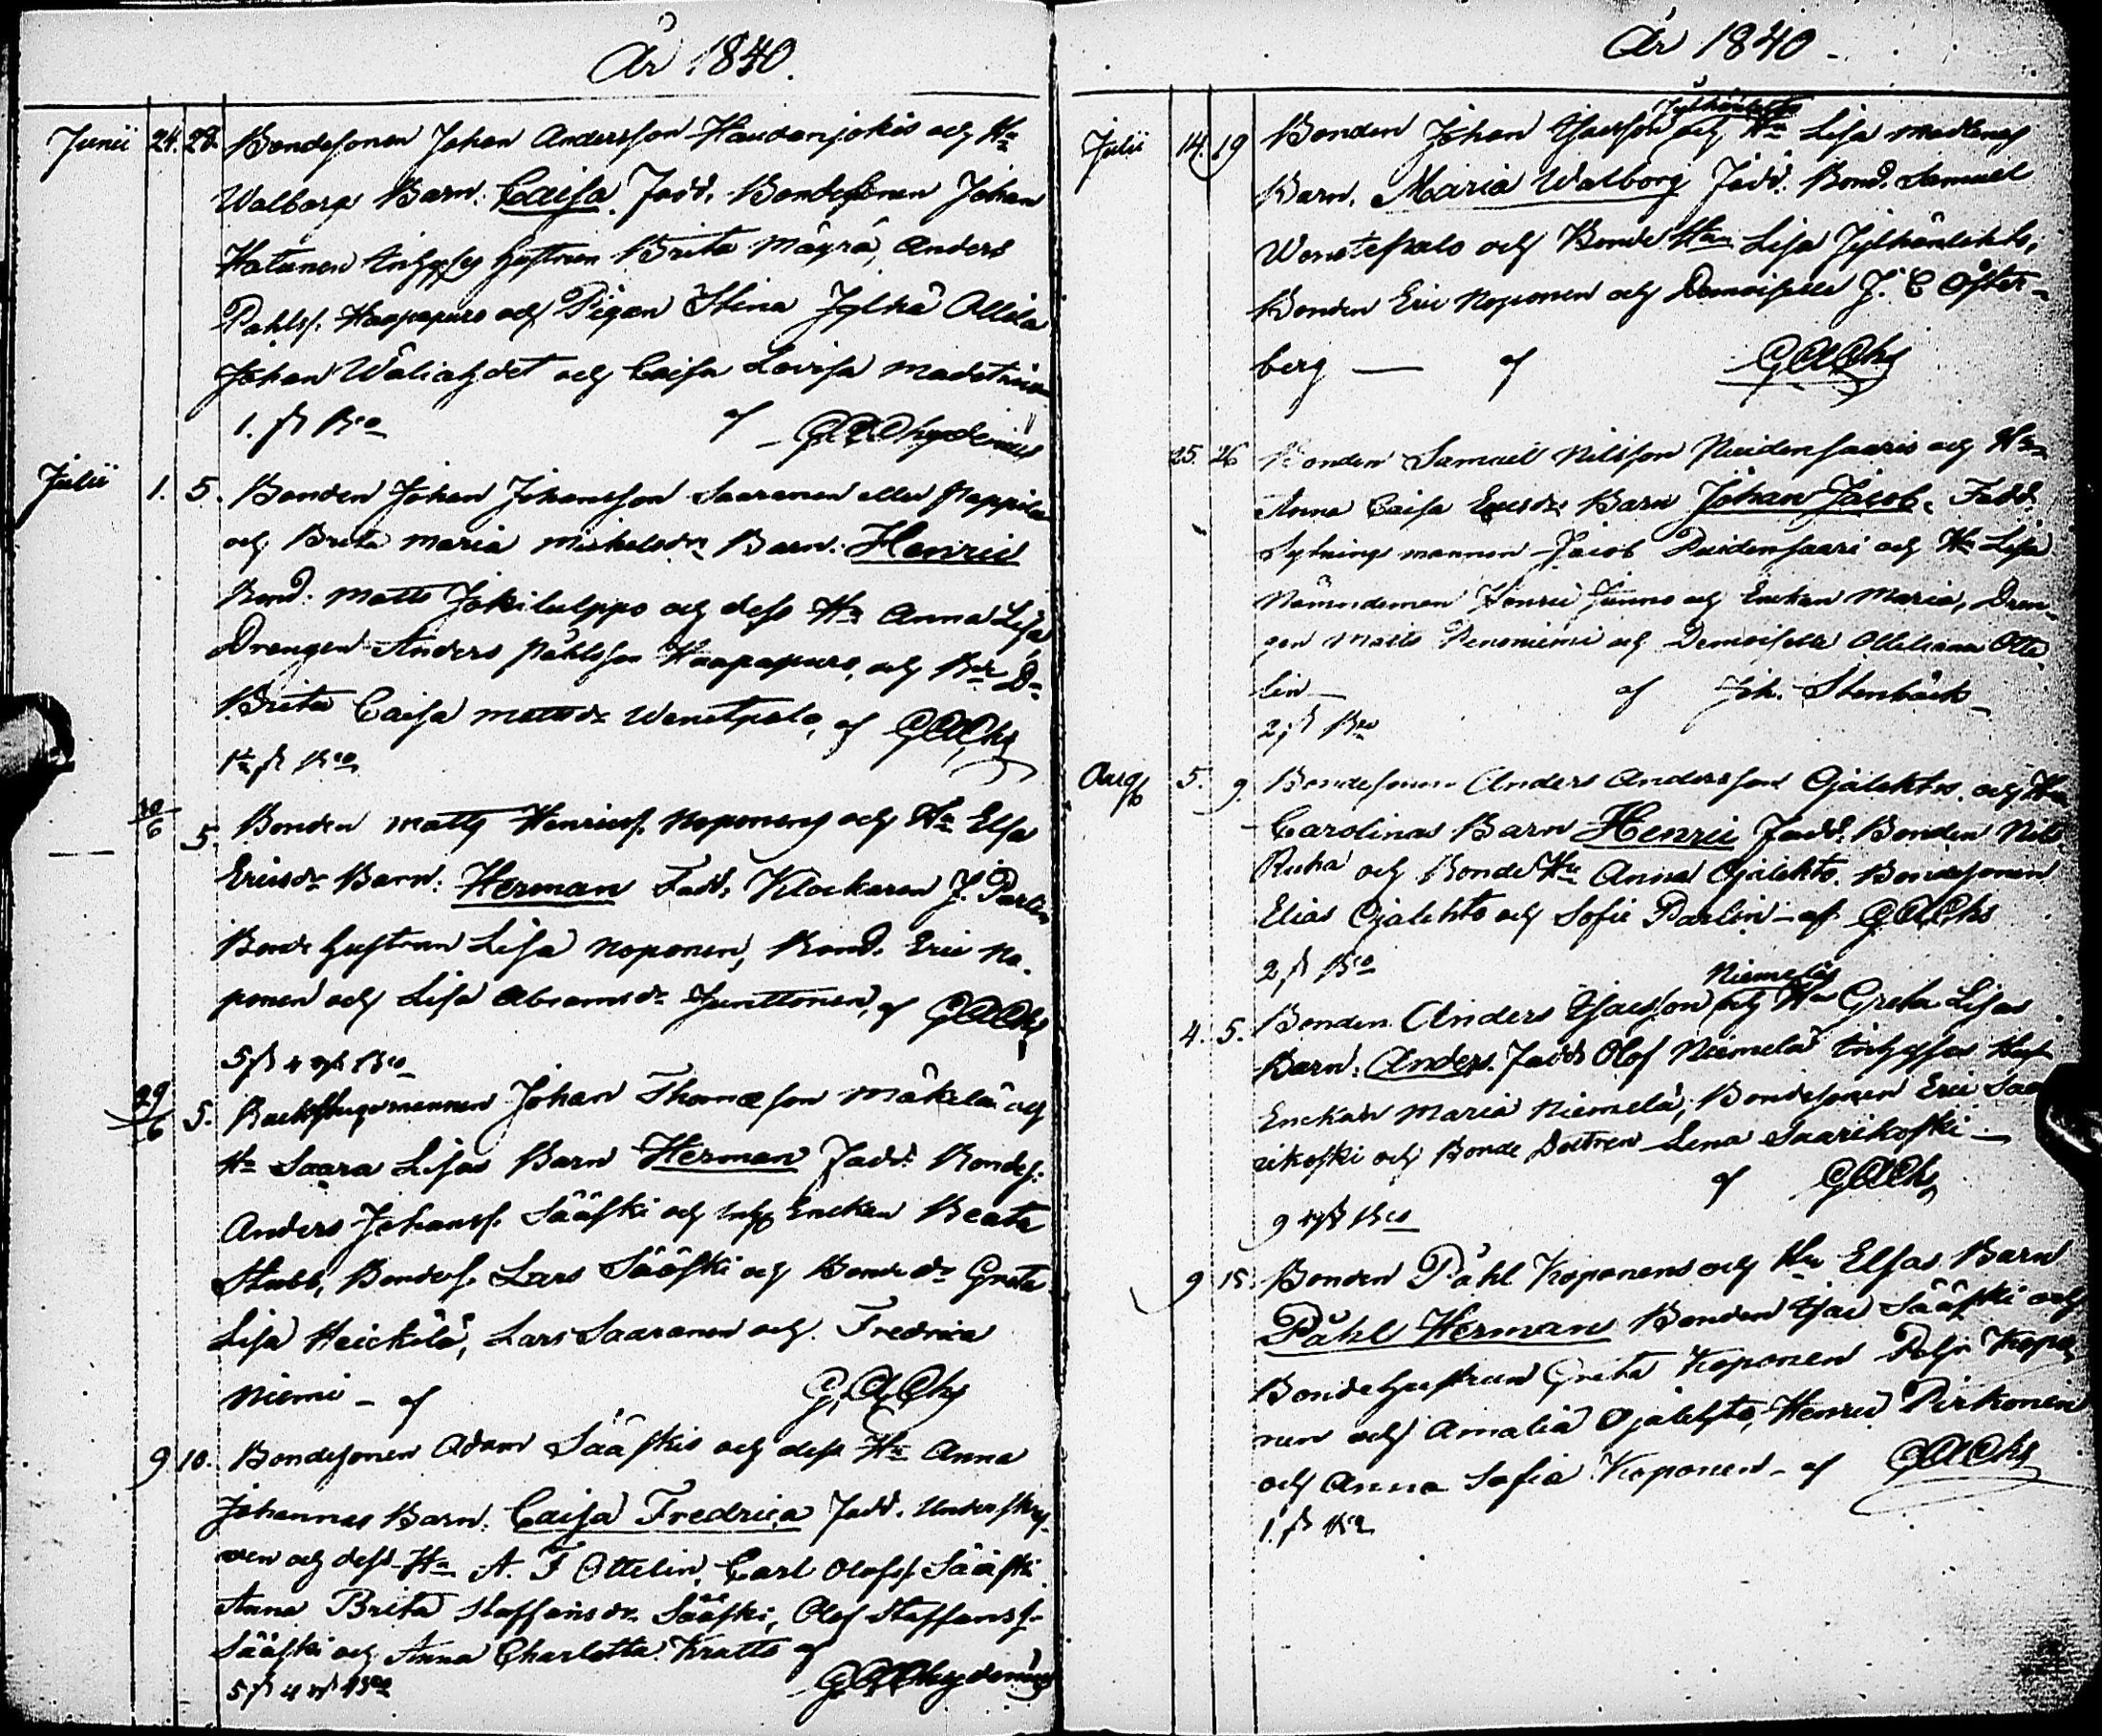 År 1840.
Junii 24. 28. Bondesonen Johan Andersson Haudanjokis och Hu
Walborgs Barn. Caisa. Fadd. Bondesonen Johan
Hatunen Inhyses hustrun Brita Mäyrä, Anders
Pahlss. Haapapuro och Pigan Stina Jylhä Ollila
Johan Wäliahdet och Caisa Lovisa
1. sk Bco af G A Chydenius
Julii 1. 5. Bonden Johan Johansson Saaranen eller Pappila
och Brita Maria Mickelsdr Barn: Henric
Bond: Matts Jokikulppo och dess Hu Anna Lisa
Drengen Anders Påhlsson Haapapuro, och Bde Dr
Brita Caisa Mattsdr Wenetpalo, af G A Chs
sk Bco
30/6 5. Bonden Matts Henricss. Noponens och Hu Elsa
Ericsdr Barn: Herman Fadd. Klockaren J. Parlin
Bonde hustrun Lisa Noponen, Bond. Eric No-
ponen och Lisa Abramsdr Junttonen, af G A Chs
5 sk 4 rst Bco
29/6 5. Backstugumannen Johan Thomasson Mäkelä och
Hu Saara Lisas Barn Herman Fadd: Bondes:
Anders Johanss. Sääski och Inhys Enckan Beata
Stubb, Bondes. Lars Sääski och Bonde dr Greta
Lisa Heickilä, Lars Saaranen och Fredrica
Niemi - af G. A. Chs
9 10. Bondesonen Adam Sääskis och dess Hu Anna
Johannas Barn: Caisa Fredrica Fadd. Underskref-
ven och dess Hu A. F Ottelin, Carl Olofss. Sääski
Anna Brita Staffansdr. Sääski, Olof Staffanss.
Sääski och Anna Charlotta Kratts af
5 sk 4 rst Bco G A Chydenius
År 1840
Jylhänlehto
Julii 14. 19 Bonden Johan Isacsson och Hu Lisa
Barn. Maria Walborg Fadd. Bond. Samuel
Wenetpalo och Bonde Hu Lisa Jylhänlehto,
Bonden Eric Noponen och Demoiselle J. C Öster-
berg — af G A Chs
25. 26 Bonden Samuel Nilsson Neidensaaris och Hu
Anna Caisa Ericsdr Barn Johan Jacob. Fadd.
Sytningsmannen Jacob och Hu Lisa
Nämndeman Henric Junno och Enckan Maria, Dren-
gen Matts Penoniemi och Demoiselle Otteliana Otte-
lin af Joh. Stenbäck
2 sk Bco
Aug 5. 9. Bondesonen Anders Andersson Ojalehtos och Hu
Carolinas Barn Henric Fadd: Bonden Nils
Ruha och Bonde Hu Anna Ojalehto. Bondesonen
Elias Ojalehto och Sofie Parlin - af G A Chs
2 sk Bco
Niemeläs
4. 5. Bonden Anders Isacsson och Hu Greta Lisas
Barn: Anders. Fadd. Olof Niemelä Inhyses Hus
Enckan Maria Niemelä, Bondesonen Eric Saa
rikoski och Bonde Dottren Lena Saarikoski —
af G A Chs
9 rst Bco
9 15. Bonden Påhl Koponens och Hu Elsas Barn
Påhl Herman Bonden Isac Sääski och
Bondehustrun Greta Koponen Kopo
nen och Amalia Ojalehto, Henric Pirkonen
och Anna Sofia Koponen - af G A Chs
1. sk Bco